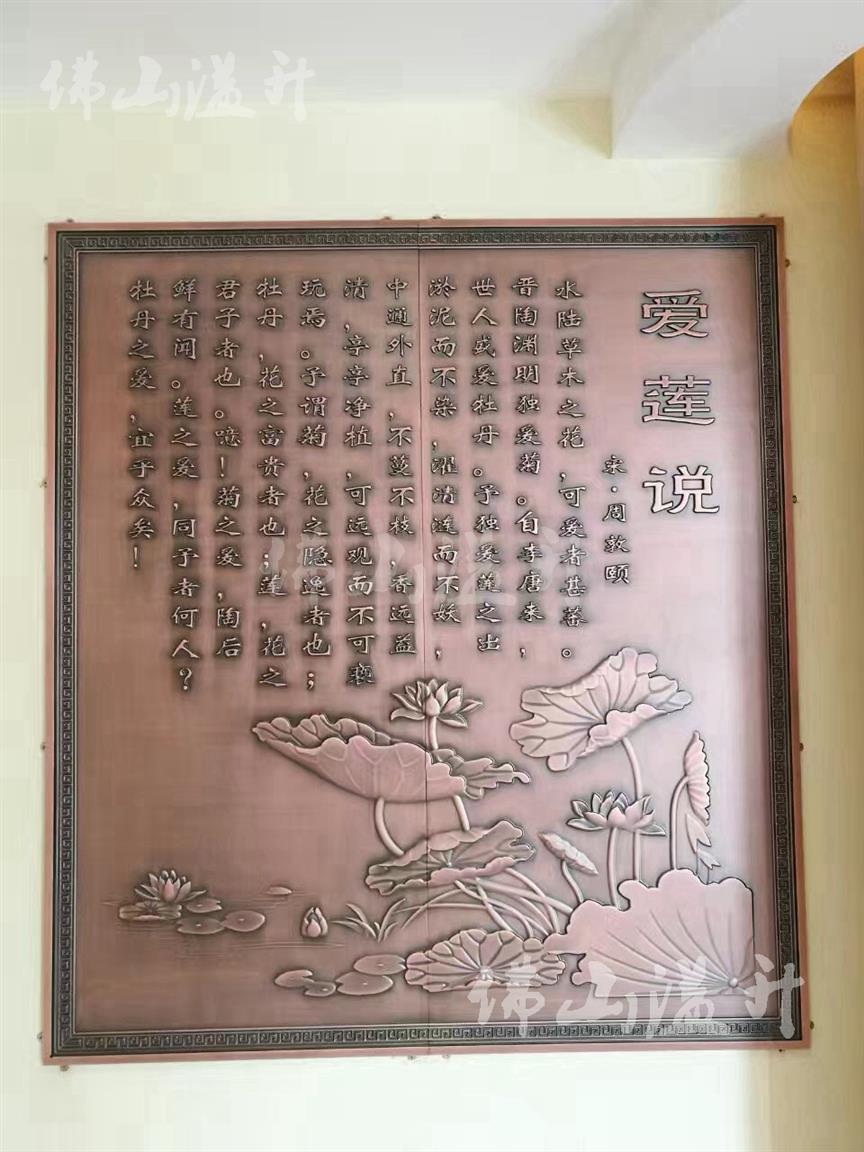 佛山溢升
爱莲说
宋·周敦颐
水陆草木之花,可爱者甚蕃。
晋陶渊明独爱菊。自李唐来,
世人或爱牡丹。予独爱莲之出
淤泥而不染,濯清涟而不妖,
中通外直,不蔓不枝,香远益
清,亭亭净植,可远观而不可亵
玩焉。予谓菊,花之隐逸者也;
牡丹,花之富贵者也;莲,花之
君子者也。噫!菊之爱,陶后
鲜有闻。莲之爱,同予者何人?
牡丹之爱,宜乎众矣!
佛山溢升
佛山溢升